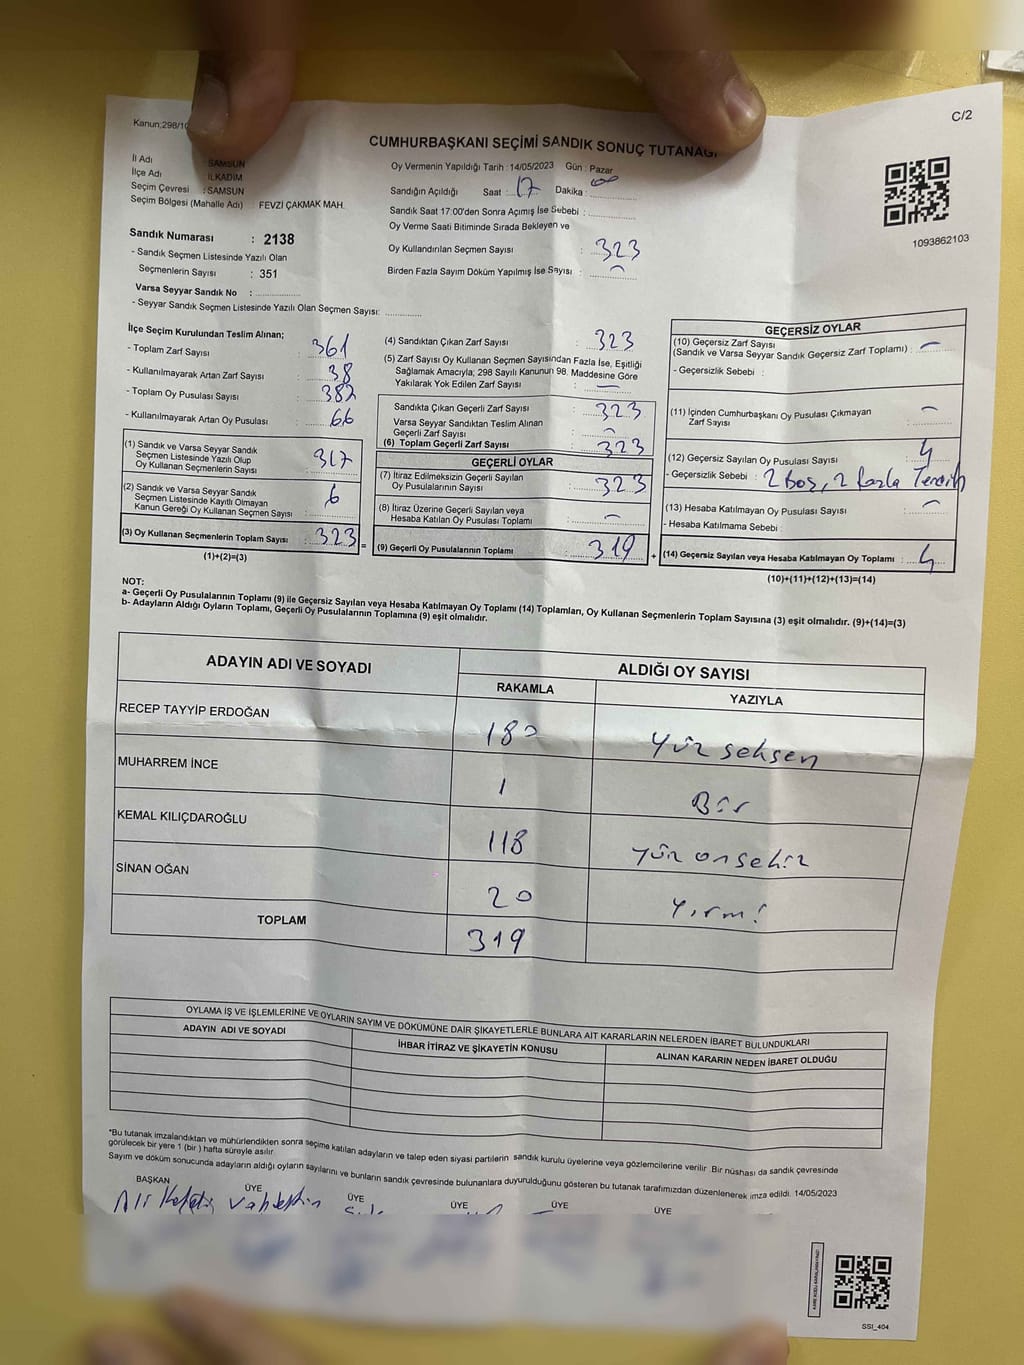 Kanun:298/10
C/2
CUMHURBAŞKANI SEÇİMİ SANDIK SONUÇ TUTANAĞI
İl Adı : SAMSUN
İlçe Adı : İLKADIM
Seçim Çevresi : SAMSUN
Seçim Bölgesi (Mahalle Adı) : FEVZİ ÇAKMAK MAH.
Oy Vermenin Yapıldığı Tarih : 14/05/2023 Gün : Pazar
Sandığın Açıldığı Saat : 17 Dakika : 00
Sandık Saat 17:00'den Sonra Açımış İse Sebebi :
Oy Verme Saati Bitiminde Sırada Bekleyen ve
Oy Kullandırılan Seçmen Sayısı : 323
Birden Fazla Sayım Döküm Yapılmış İse Sayısı : -
1093862103
Sandık Numarası : 2138
- Sandık Seçmen Listesinde Yazılı Olan
Seçmenlerin Sayısı : 351
Varsa Seyyar Sandık No :
- Seyyar Sandık Seçmen Listesinde Yazılı Olan Seçmen Sayısı:
İlçe Seçim Kurulundan Teslim Alınan;
- Toplam Zarf Sayısı : 361
- Kullanılmayarak Artan Zarf Sayısı : 38
- Toplam Oy Pusulası Sayısı : 382
- Kullanılmayarak Artan Oy Pusulası : 66
(1) Sandık ve Varsa Seyyar Sandık
Seçmen Listesinde Yazılı Olup
Oy Kullanan Seçmenlerin Sayısı : 317
(2) Sandık ve Varsa Seyyar Sandık
Seçmen Listesinde Kayıtlı Olmayan
Kanun Gereği Oy Kullanan Seçmen Sayısı : 6
(3) Oy Kullanan Seçmenlerin Toplam Sayısı : 323
(1)+(2)=(3)
(4) Sandıktan Çıkan Zarf Sayısı : 323
(5) Zarf Sayısı Oy Kullanan Seçmen Sayısından Fazla İse, Eşitliği
Sağlamak Amacıyla; 298 Sayılı Kanunun 98. Maddesine Göre
Yakılarak Yok Edilen Zarf Sayısı : -
Sandıkta Çıkan Geçerli Zarf Sayısı : 323
Varsa Seyyar Sandıktan Teslim Alınan
Geçerli Zarf Sayısı : -
(6) Toplam Geçerli Zarf Sayısı : 323
GEÇERLİ OYLAR
(7) İtiraz Edilmeksizin Geçerli Sayılan
Oy Pusulalarının Sayısı : 323
(8) İtiraz Üzerine Geçerli Sayılan veya
Hesaba Katılan Oy Pusulası Toplamı : -
= (9) Geçerli Oy Pusulalarının Toplamı : 319 +
GEÇERSİZ OYLAR
(10) Geçersiz Zarf Sayısı
(Sandık ve Varsa Seyyar Sandık Geçersiz Zarf Toplamı) : -
- Geçersizlik Sebebi :
(11) İçinden Cumhurbaşkanı Oy Pusulası Çıkmayan
Zarf Sayısı : -
(12) Geçersiz Sayılan Oy Pusulası Sayısı : 4
- Geçersizlik Sebebi : 2 Boş, 2 fazla Tercih
(13) Hesaba Katılmayan Oy Pusulası Sayısı : -
- Hesaba Katılmama Sebebi :
(14) Geçersiz Sayılan veya Hesaba Katılmayan Oy Toplamı : 4
(10)+(11)+(12)+(13)=(14)
NOT:
a- Geçerli Oy Pusulalarının Toplamı (9) ile Geçersiz Sayılan veya Hesaba Katılmayan Oy Toplamı (14) Toplamları, Oy Kullanan Seçmenlerin Toplam Sayısına (3) eşit olmalıdır. (9)+(14)=(3)
b- Adayların Aldığı Oyların Toplamı, Geçerli Oy Pusulalarının Toplamına (9) eşit olmalıdır.
ADAYIN ADI VE SOYADI ALDIĞI OY SAYISI
RAKAMLA YAZIYLA
RECEP TAYYİP ERDOĞAN 180 Yüz seksen
MUHARREM İNCE 1 Bir
KEMAL KILIÇDAROĞLU 118 Yüz onsekiz
SİNAN OĞAN 20 Yirmi
TOPLAM 319
OYLAMA İŞ VE İŞLEMLERİNE VE OYLARIN SAYIM VE DÖKÜMÜNE DAİR ŞİKAYETLERLE BUNLARA AİT KARARLARIN NELERDEN İBARET BULUNDUKLARI
ADAYIN ADI VE SOYADI İHBAR İTİRAZ VE ŞİKAYETİN KONUSU ALINAN KARARIN NEDEN İBARET OLDUĞU
*Bu tutanak imzalandıktan ve mühürlendikten sonra seçime katılan adayların ve talep eden siyasi partilerin sandık kurulu üyelerine veya gözlemcilerine verilir. Bir nüshası da sandık çevresinde
görülecek bir yere 1 (bir) hafta süreyle asılır.
Sayım ve döküm sonucunda adayların aldığı oyların sayılarını ve bunların sandık çevresinde bulunanlara duyurulduğunu gösteren bu tutanak tarafımızdan düzenlenerek imza edildi. 14/05/2023
BAŞKAN ÜYE ÜYE ÜYE ÜYE ÜYE
Ali
SSI_404